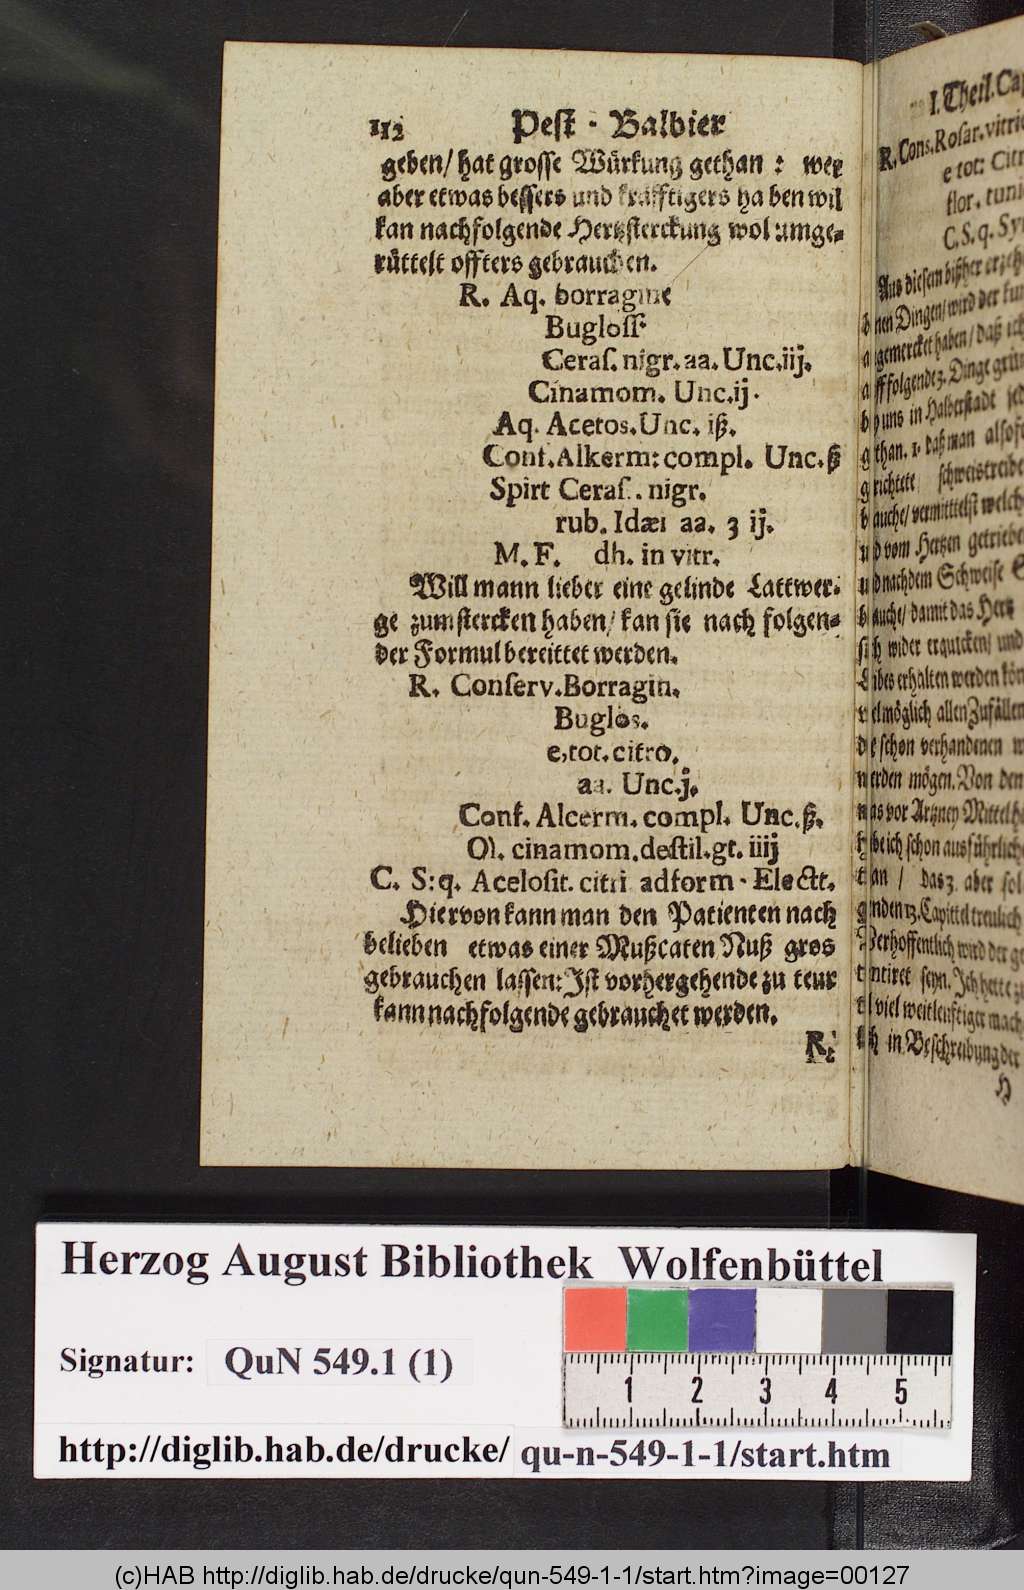 112 Pest - Balbier
geben/ hat grosse Würkung gethan : wer
aber etwas bessers und kräfftigers ha ben wil
kan nachfolgende Hertzsterckung wol umge-
rüttelt offters gebrauchen.
R. Aq. borragine
Bugloss
Ceras. nigr. aa. Unc. iij.
Cinamom. Unc. ij.
Aq. Acetos. Unc. iß.
Conf. Alkerm: compl. Unc. ß
Spirt Ceras. . nigr.
rub. Idæi aa. ʒ ij.
M. F. dh. in vitr.
Will mann lieber eine gelinde Lattwer-
ge zum stercken haben/ kan sie nach folgen-
der Formul bereittet werden.
R. Conserv. Borragin.
Buglos.
e, tot. citro.
aa. Unc. j.
Conf. Alcerm. compl. Unc. ß.
Ol. cinamom. destil. gt. iiij
C. S: q. Acelosit. citri adform - Electt.
Hiervon kann man den Patienten nach
belieben etwas einer Mußcaten Nuß gros
gebrauchen lassen: Ist vorhergehende zu teur
kann nachfolgende gebrauchet werden.
R:
I. Theil. Cap
R. Cons. Rosar. vitri
e tot: Citr
flor. tuni
C. S. q. Syr
Aus diesem bißher erzeh
nen Dingen/ wird der kun
gemercket haben/ daß ich
folgende 3. Dinge grün
uns in Halberstadt
than. 1. daß man alsofo
richtete schweistreibe
auche/ vermittelst welch
d vom Hertzen getriebe
d nachdem Schweise
auche/ damit das Hertz
h wider erquicken/ und
ibes erhalten werden kön
elmöglich allen Zufällen
e schon verhandenen
erden mögen. Von den
as vor Artzney Mittel
be ich schon ausführlich
an / das 3. aber sol
nden 13. Capittel treulich
Verhoffentlich wird der
ntiret seyn. Ich hette
viel weitleuftiger mach
h in Beschreibung der
H
Herzog August Bibliothek Wolfenbüttel
Signatur: QuN 549.1 (1)
1 2 3 4 5
http://diglib.hab.de/drucke/ qu-n-549-1-1/start.htm
(c)HAB http://diglib.hab.de/drucke/qun-549-1-1/start.htm?image=00127